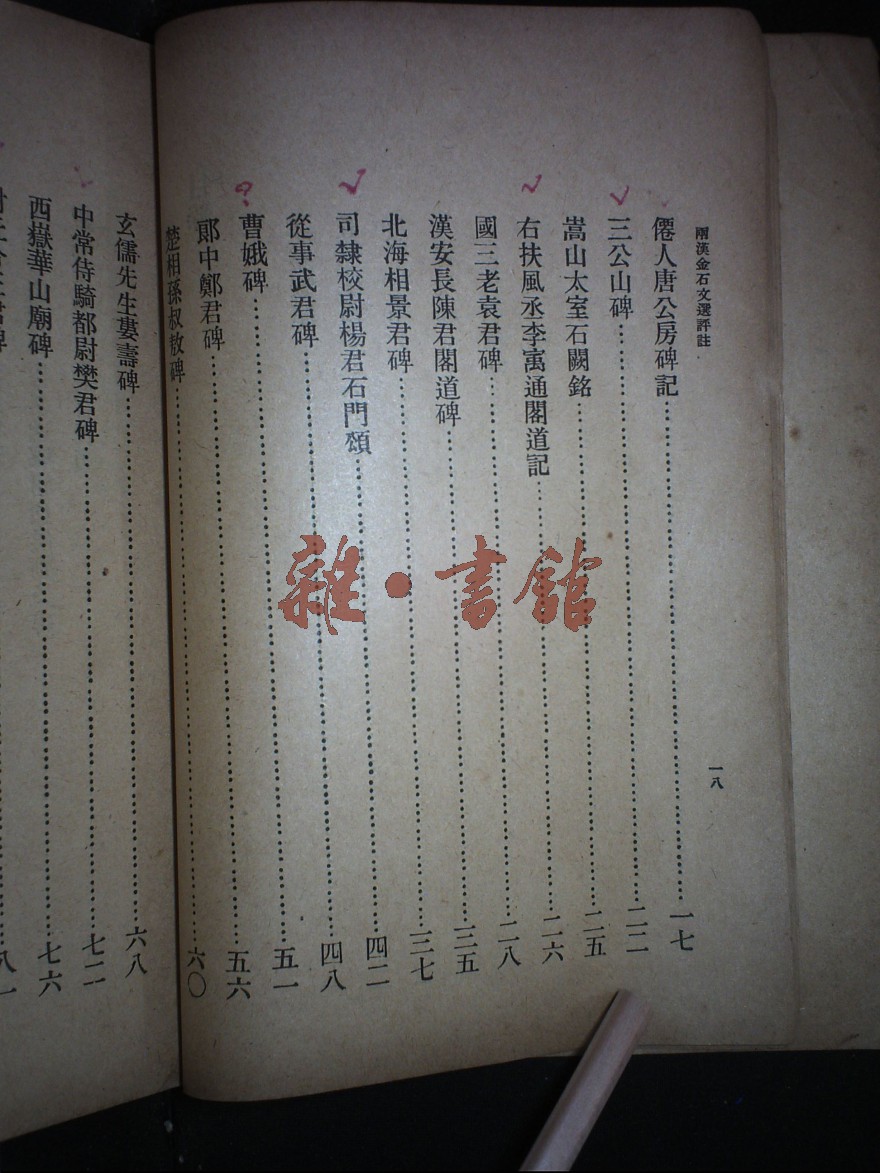 兩漢金石文選評註
一八
僊人唐公房碑記……一七
三公山碑……二二
嵩山太室石闕銘……二五
右扶風丞李寓通閣道記……二六
國三老袁君碑……二八
漢安長陳君閣道碑……三五
北海相景君碑……三七
司隸校尉楊君石門頌……四二
從事武君碑……四八
曹娥碑……五一
郎中鄭君碑……五六
楚相孫叔敖碑……六〇
玄儒先生婁壽碑……六八
中常侍騎都尉樊君碑……七二
西嶽華山廟碑……七六
雜·書館